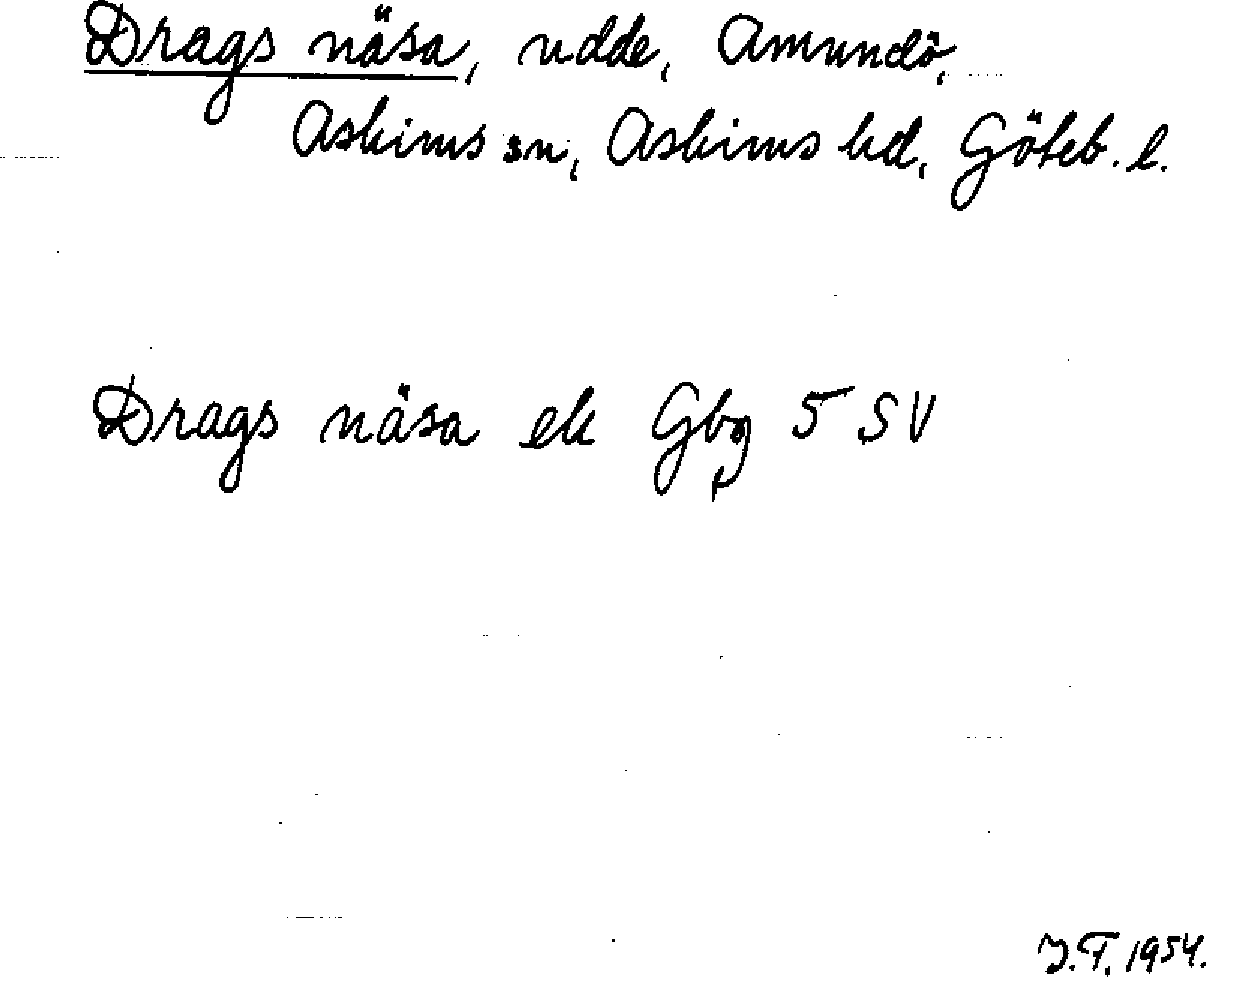 Drags näsa, udde, Amundö,
Askims sn, Askims hd, Göteb. l.
Drags näsa ek Gbg 5 SV
J.T. 1954.